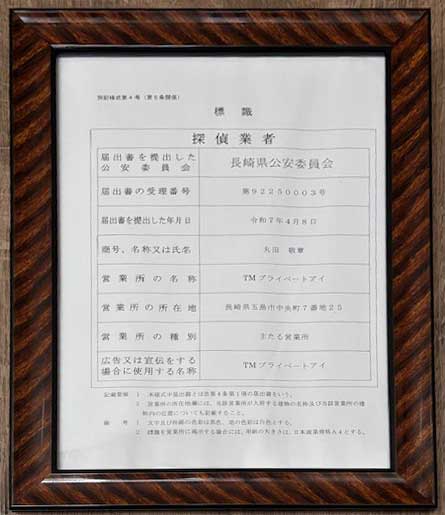 別記様式第4号（第6条関係）
標 識
探 偵 業 者
届出書を提出した
公安委員会
長崎県公安委員会
届出書の受理番号
第92250003号
届出書を提出した年月日
令和7年4月8日
商号、名称又は氏名
丸田 敬章
営業所の名称
TMプライベートアイ
営業所の所在地
長崎県五島市中央町7番地25
営業所の種別
主たる営業所
広告又は宣伝をする
場合に使用する名称
TMプライベートアイ
記載要領 1 本様式中届出書とは法第4条第1項の届出書をいう。
2 営業所の所在地欄には、当該営業所が入居する建物の名称及び当該営業所の建
物内の位置についても記載すること。
備 考 1 文字及び枠線の色彩は黒色、地の色彩は白色とする。
2 標識を営業所に掲示する場合には、用紙の大きさは、日本産業規格A4とする。